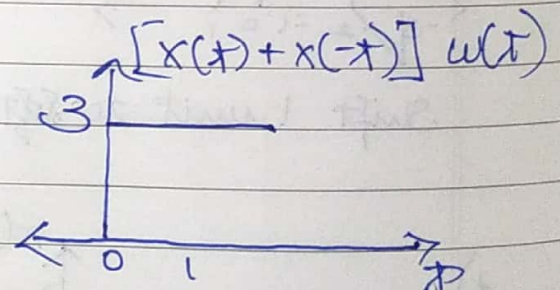 [x(t) + x(-t)] u(t)
3
0 1 t